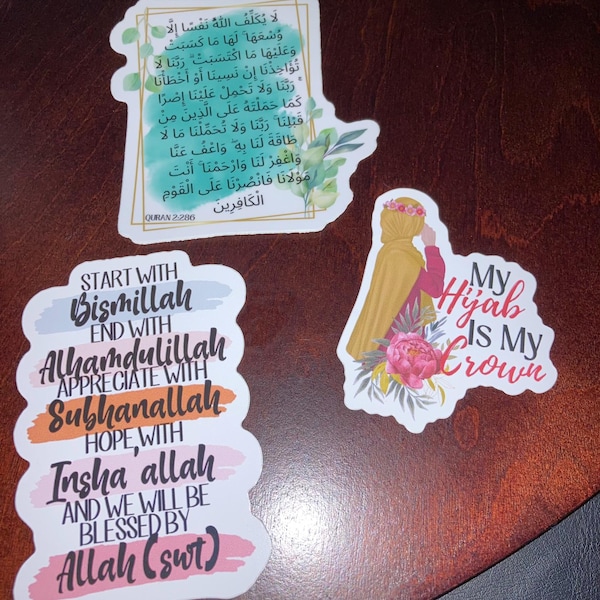 لَا يُكَلِّفُ اللَّهُ نَفْسًا إِلَّا
وُسْعَهَا ۚ لَهَا مَا كَسَبَتْ
وَعَلَيْهَا مَا اكْتَسَبَتْ ۗ رَبَّنَا لَا
تُؤَاخِذْنَا إِن نَّسِينَا أَوْ أَخْطَأْنَا
ۚ رَبَّنَا وَلَا تَحْمِلْ عَلَيْنَا إِصْرًا
كَمَا حَمَلْتَهُ عَلَى الَّذِينَ مِنْ
قَبْلِنَا ۚ رَبَّنَا وَلَا تُحَمِّلْنَا مَا لَا
طَاقَةَ لَنَا بِهِ ۖ وَاعْفُ عَنَّا
وَاغْفِرْ لَنَا وَارْحَمْنَا ۚ أَنْتَ
مَوْلَانَا فَانْصُرْنَا عَلَى الْقَوْمِ
الْكَافِرِينَ
QURAN 2:286
START WITH
Bismillah
END WITH
Alhamdulillah
APPRECIATE WITH
Subhanallah
HOPE WITH
Insha'allah
AND WE WILL BE
BLESSED BY
Allah (swt)
My
Hijab
Is My
Crown